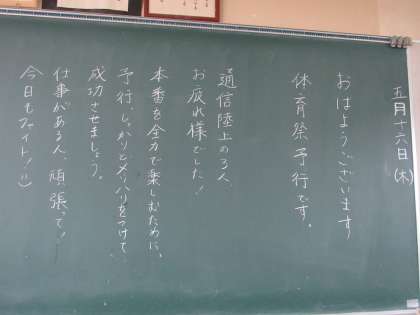 五月十六日(木)
おはようございます
体育祭予行です。
通信陸上の3人、
お疲れ様でした!
本番を全力で楽しむために、
予行、しっかりとメリハリをつけて
成功させましょう。
仕事がある人、頑張って!
今日もファイト!!